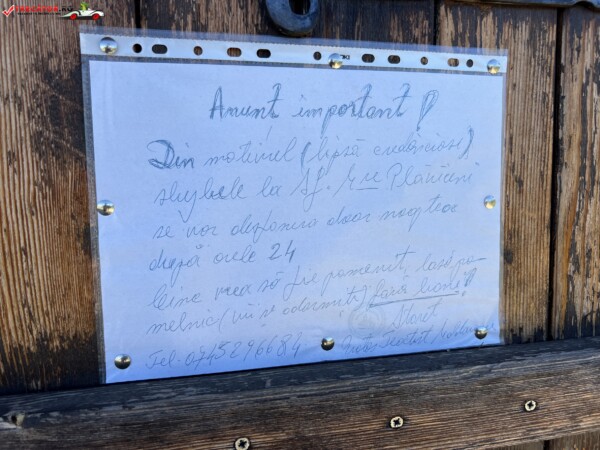 Anunț important!
Din motivul (lipsă credincioși),
slujbele la Sf. M-re Plăviceni
se vor desfășura doar noaptea
după orele 24
Cine vrea să fie pomenit, lasă po-
melnic (vii și adormiți) fără bani!
Stareț
Tel: 0745296684 Teoctist